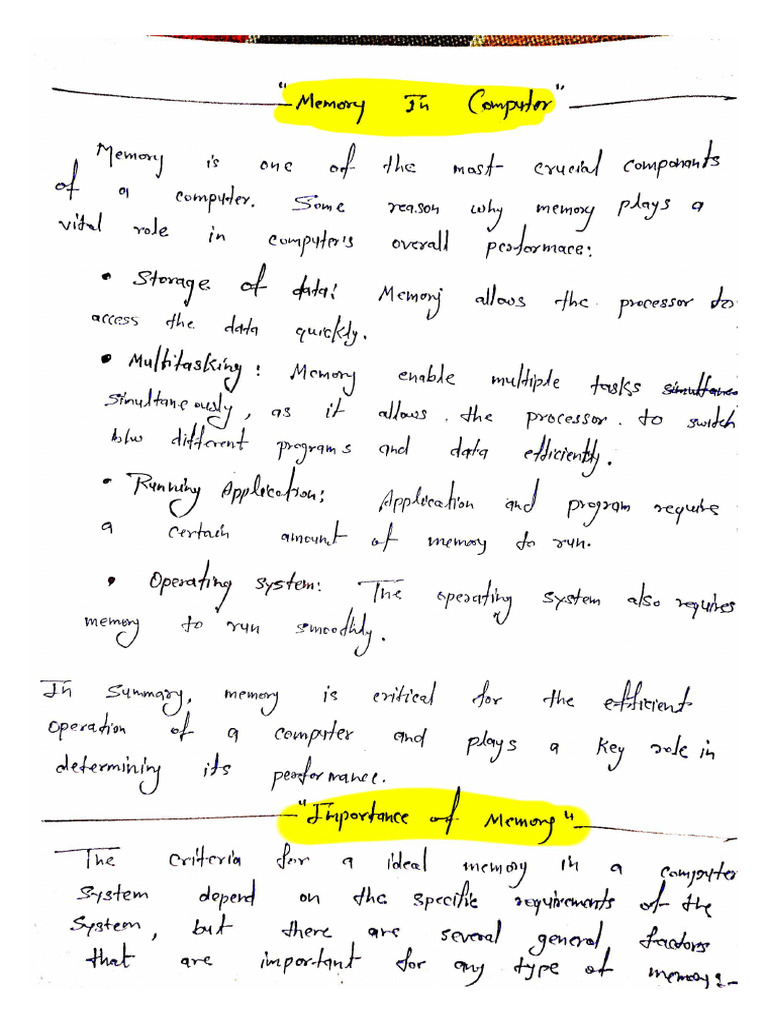 "Memory In Computer"
Memory is one of the most crucial components
of a computer. Some reason why memory plays a
vital role in computer's overall performace:
• Storage of data: Memory allows the processor to
access the data quickly.
• Multitasking: Memory enable multiple tasks simultaneo
simultaneously, as it allows the processor to switch
b/w different programs and data efficiently.
• Running Application: Application and program require
a certain amount of memory to run.
• Operating system: The operating system also requires
memory to run smoothly.
In Summary, memory is critical for the efficient
operation of a computer and plays a key role in
determining its performance.
"Importance of Memory"
The criteria for a ideal memory in a computer
system depend on the specific requirements of the
system, but there are several general factors
that are important for any type of memory:-